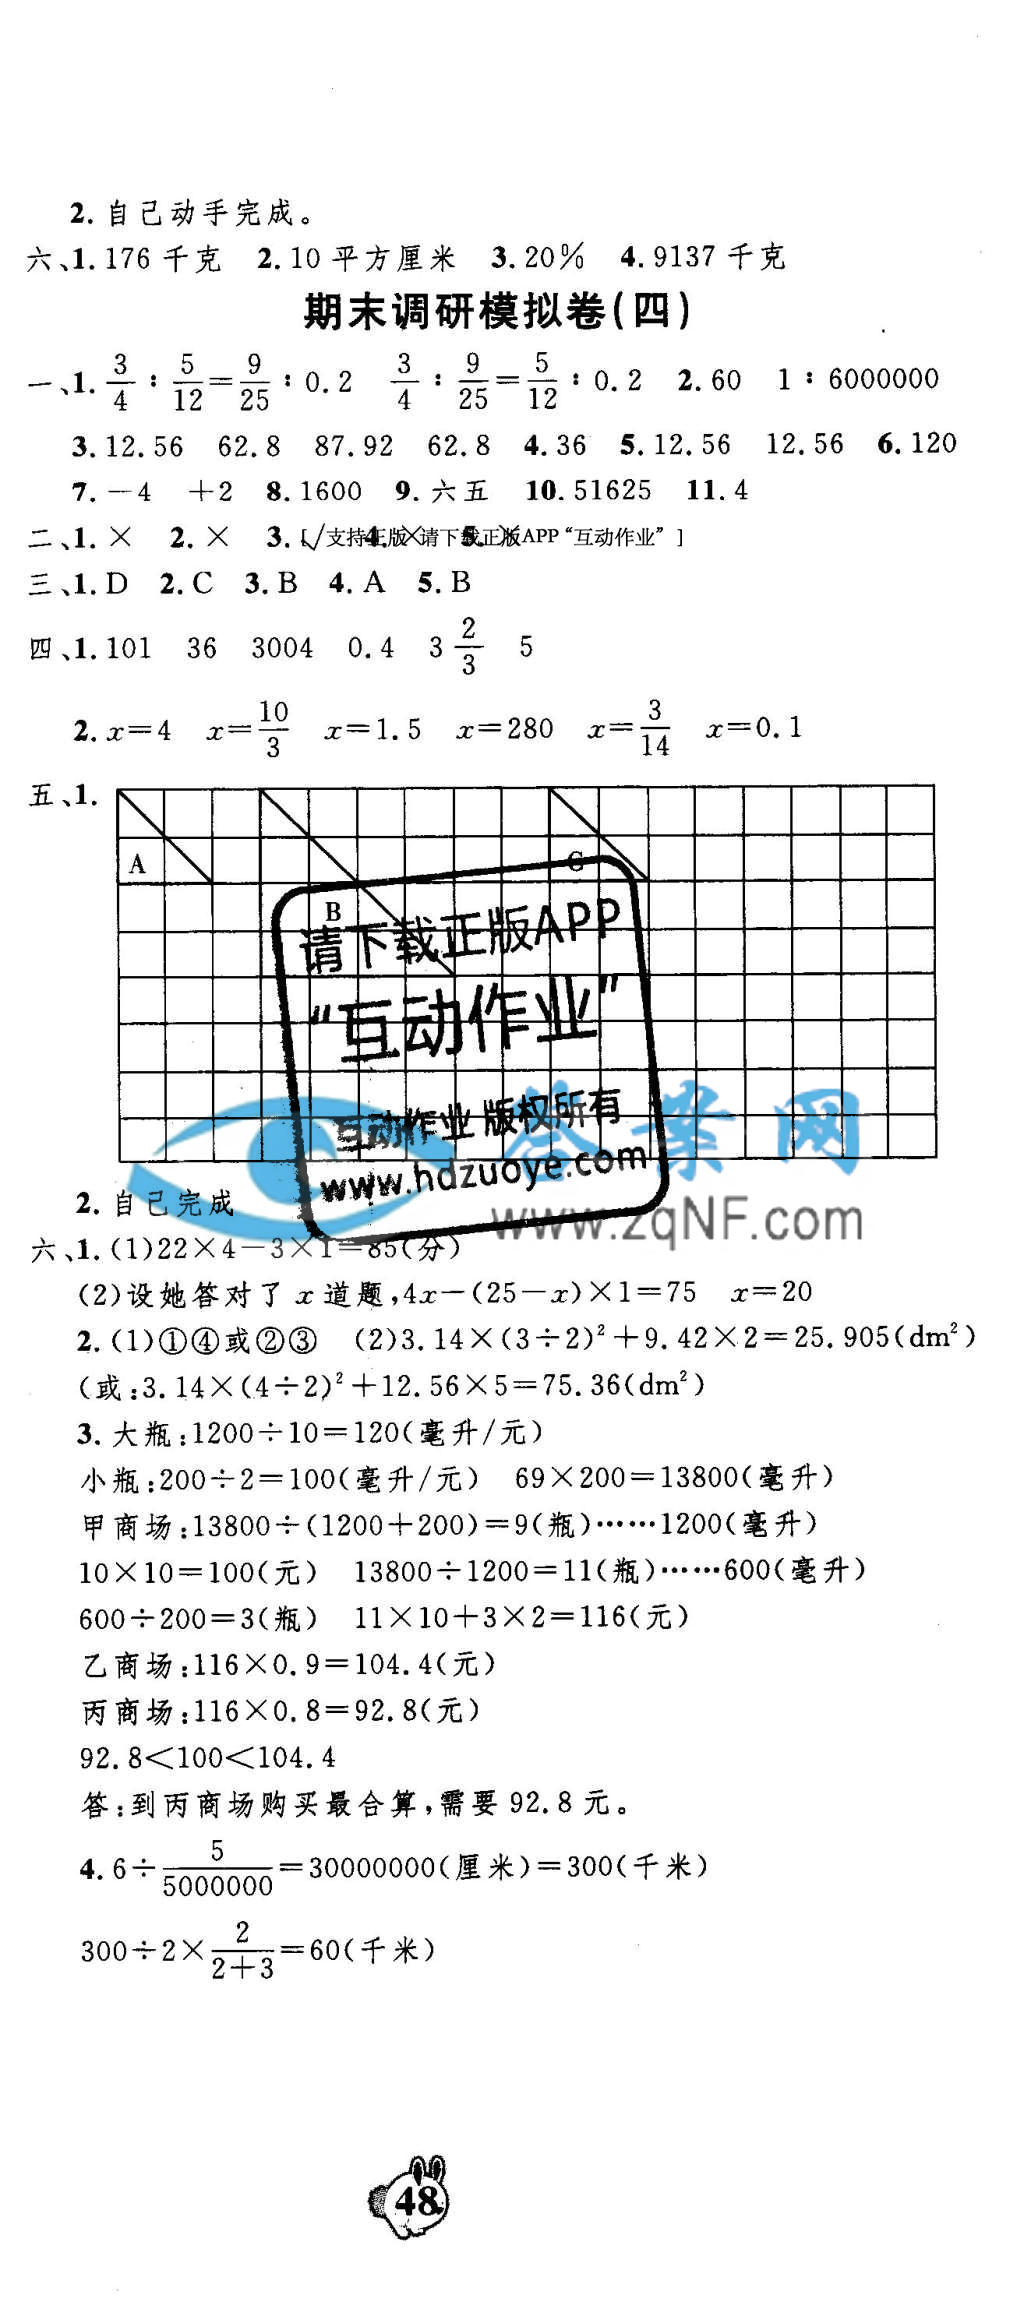 2.自己动手完成。
六、1.176千克 2.10平方厘米 3.20% 4.9137千克
期末调研模拟卷(四)
一、1. 3/4 : 5/12 = 9/25 : 0.2 3/4 : 9/25 = 5/12 : 0.2 2.60 1:6000000
3.12.56 62.8 87.92 62.8 4.36 5.12.56 12.56 6.120
7.-4 +2 8.1600 9.六五 10.51625 11.4
二、1.× 2.× 3.√ 4.× 5.×
[支持正版 请下载正版APP“互动作业”]
三、1.D 2.C 3.B 4.A 5.B
四、1.101 36 3004 0.4 3 2/3 5
2.x=4 x=10/3 x=1.5 x=280 x=3/14 x=0.1
五、1.
A
B
C
请下载正版APP
“互动作业”
互动作业 版权所有
www.hdzuoye.com
答案网
www.zqNF.com
2.自己完成
六、1.(1)22×4-3×1=85(分)
(2)设她答对了x道题,4x-(25-x)×1=75 x=20
2.(1)①④或②③ (2)3.14×(3÷2)²+9.42×2=25.905(dm²)
(或:3.14×(4÷2)²+12.56×5=75.36(dm²)
3.大瓶:1200÷10=120(毫升/元)
小瓶:200÷2=100(毫升/元) 69×200=13800(毫升)
甲商场:13800÷(1200+200)=9(瓶)……1200(毫升)
10×10=100(元) 13800÷1200=11(瓶)……600(毫升)
600÷200=3(瓶) 11×10+3×2=116(元)
乙商场:116×0.9=104.4(元)
丙商场:116×0.8=92.8(元)
92.8<100<104.4
答:到丙商场购买最合算,需要92.8元。
4.6÷5/5000000=30000000(厘米)=300(千米)
300÷2×2/(2+3)=60(千米)
48